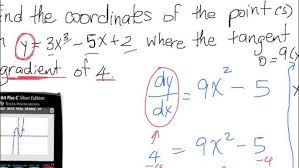 find the coordinates of the point(s)
y = 3x³ - 5x + 2 where the tangent
gradient of 4.
0 = 9(x
dy/dx = 9x² - 5
4 = 9x² - 5
-4
84 Plus C Silver Edition
TEXAS INSTRUMENTS